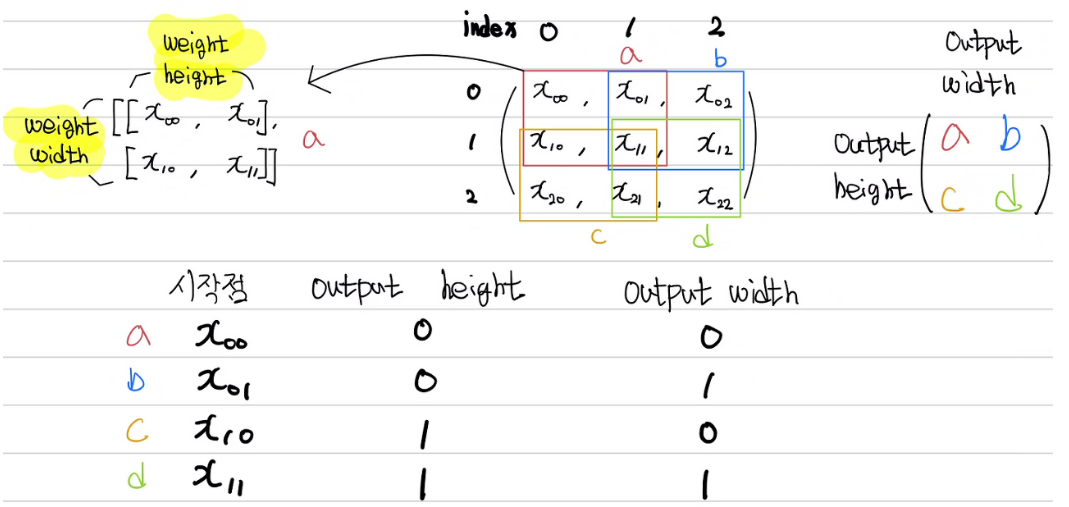 index 0 1 2
a b
weight
height
weight
width
[[x00, x01],
[x10, x11]]
a
0 x00, x01, x02
1 x10, x11, x12
2 x20, x21, x22
c d
Output
width
Output
height
a b
c d
시작점 output height output width
a x00 0 0
b x01 0 1
c x10 1 0
d x11 1 1